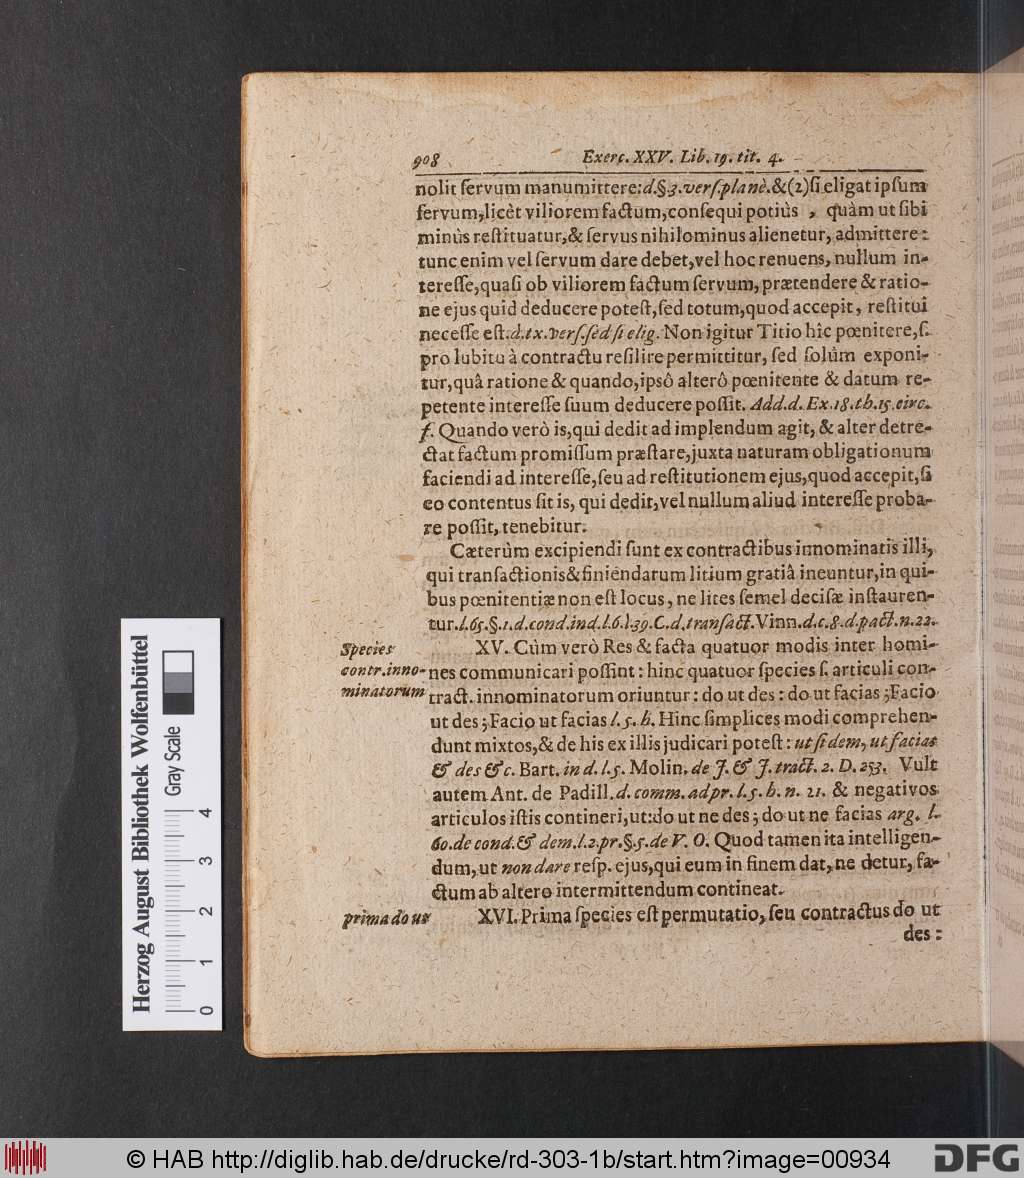 908 Exerc. XXV. Lib. 19. tit. 4.
nolit ſervum manumittere: d. §3. verſ. planè. &(2) ſi eligat ipſum
ſervum, licèt viliorem factum, conſequi potiùs, quàm ut ſibi
minùs reſtituatur, & ſervus nihilominus alienetur, admittere:
tunc enim vel ſervum dare debet, vel hoc renuens, nullum in-
tereſſe, quaſi ob viliorem factum ſervum, prætendere & ratio-
ne ejus quid deducere poteſt, ſed totum, quod accepit, reſtitui
neceſſe eſt. d. tx. verſ. ſed ſi elig. Non igitur Titio hîc pœnitere, ſ.
pro lubitu à contractu reſilire permittitur, ſed ſolùm exponi-
tur, quâ ratione & quando, ipsô alterô pœnitente & datum re-
petente intereſſe ſuum deducere poſſit. Add. d. Ex. 18. th. 15. circ.
f. Quando verò is, qui dedit ad implendum agit, & alter detre-
ctat factum promiſſum præſtare, juxta naturam obligationum
faciendi ad intereſſe, ſeu ad reſtitutionem ejus, quod accepit, ſi
eo contentus ſit is, qui dedit, vel nullum aliud intereſſe proba-
re poſſit, tenebitur.
Cæterùm excipiendi ſunt ex contractibus innominatis illi,
qui tranſactionis & finiendarum litium gratiâ ineuntur, in qui-
bus pœnitentiæ non eſt locus, ne lites ſemel deciſæ inſtauren-
tur. l. 65. §. 1. d. cond. ind. l. 6. l. 39. C. d. tranſact. Vinn. d. c. 8. d. pact. n. 22.
Species
contr. inno-
minatorum
XV. Cùm verò Res & facta quatuor modis inter homi-
nes communicari poſſint: hinc quatuor ſpecies ſ. articuli con-
tract. innominatorum oriuntur: do ut des: do ut facias; Facio
ut des; Facio ut facias l. 5. h. Hinc ſimplices modi comprehen-
dunt mixtos, & de his ex illis judicari poteſt: ut ſi dem, ut facias
& des &c. Bart. in d. l. 5. Molin. de J. & J. tract. 2. D. 253. Vult
autem Ant. de Padill. d. comm. ad pr. l. 5. h. n. 21. & negativos
articulos iſtis contineri, ut: do ut ne des; do ut ne facias arg. l.
60. de cond. & dem. l. 2. pr. §. 5. de V. O. Quod tamen ita intelligen-
dum, ut non dare reſp. ejus, qui eum in finem dat, ne detur, fa-
ctum ab altero intermittendum contineat.
prima do ut
XVI. Prima ſpecies eſt permutatio, ſeu contractus do ut
des:
Herzog August Bibliothek Wolfenbüttel
Gray Scale
0 1 2 3 4
© HAB http://diglib.hab.de/drucke/rd-303-1b/start.htm?image=00934
DFG